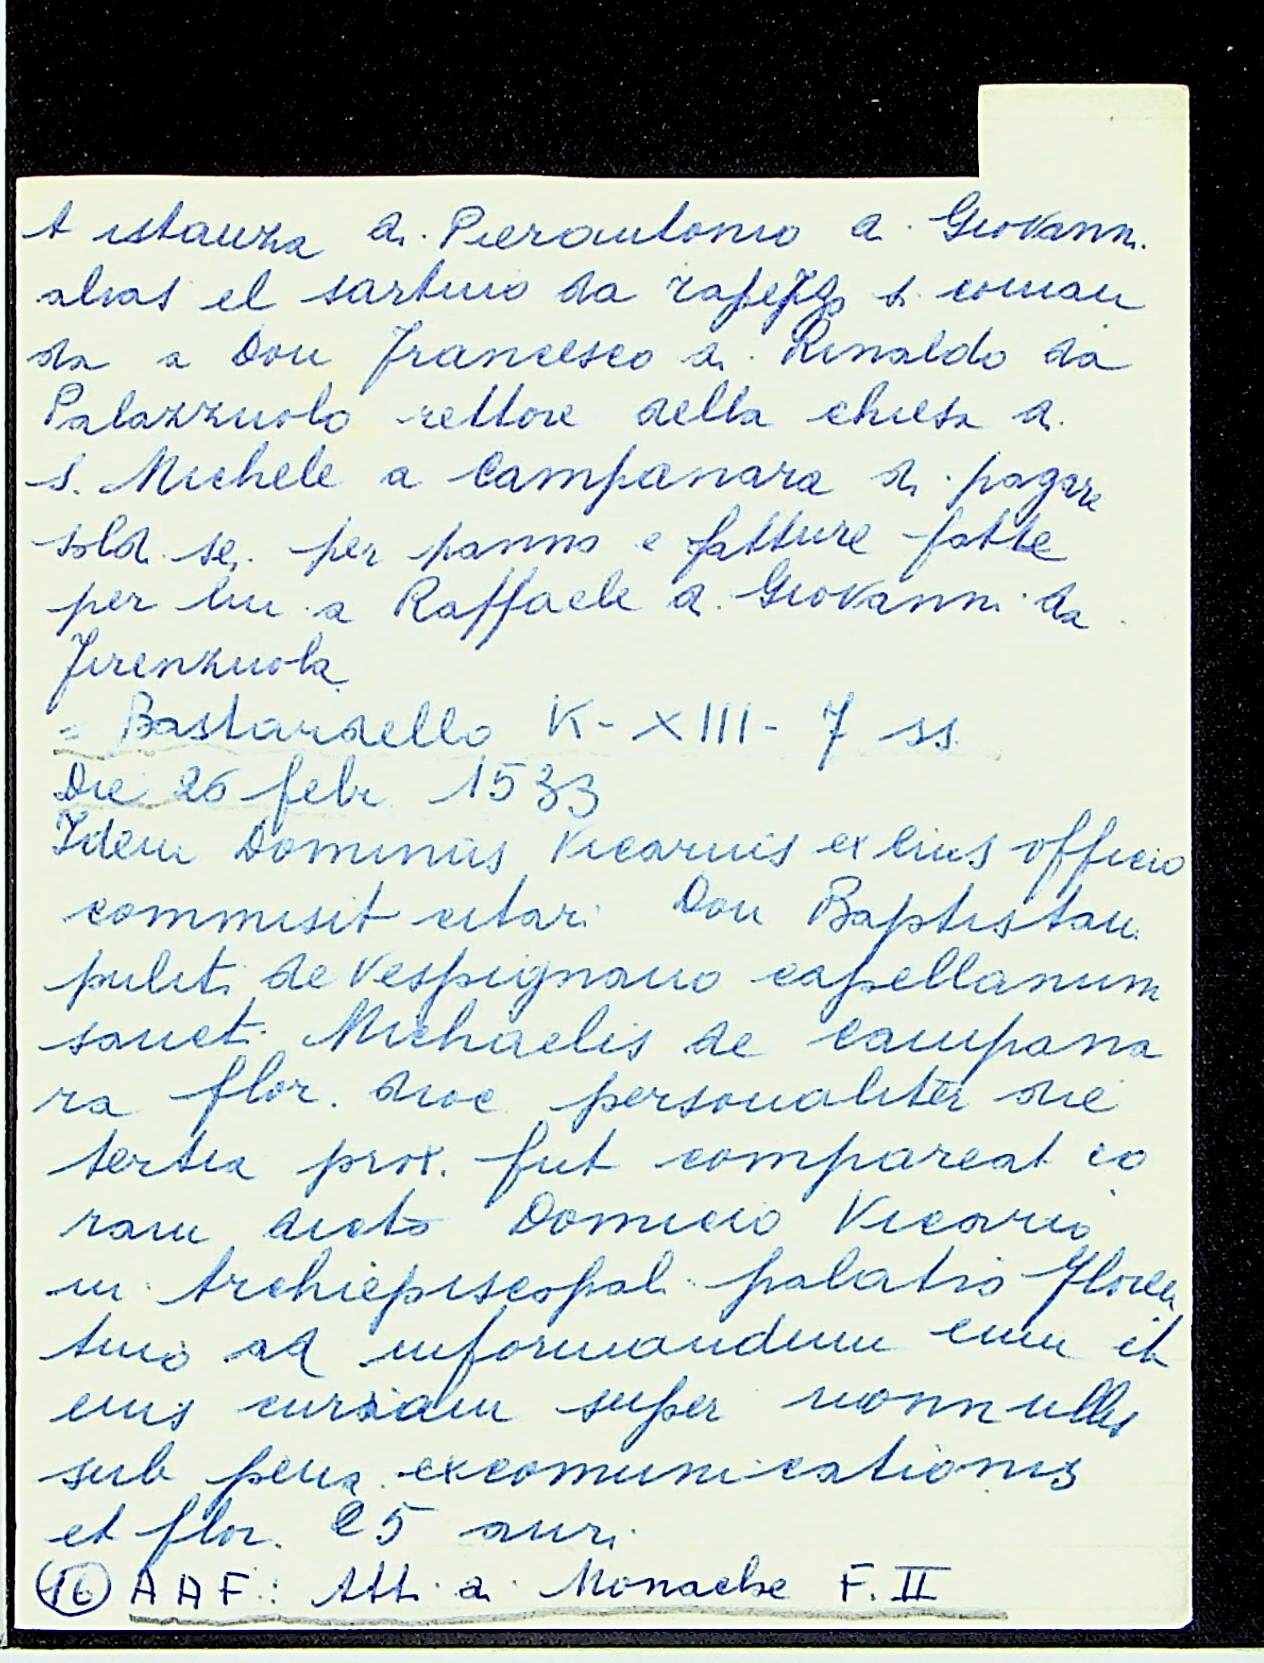 A istanza di Pierantonio di Giovanni
alias el sartino da si coman
da a Don Francesco di Rinaldo da
Palazzuolo rettore della chiesa di
S. Michele a Campanara di pagare
soldi sei per panno e fatture fatte
per lui a Raffaele di Giovanni da
Firenzuola
= Bastardello K-XIII-7 ss.
Die 26 febr 1533
Idem Dominus Vicarius ex eius officio
commisit citari Don Baptistam
puliti de Vespignano capellanum
sancti Michaelis de campana
ra flor. dioc personaliter die
tertia prox. fut compareat co
ram dicto Domino Vicario
in Archiepiscopali palatio floren
tino ad informandum eum et
eius curiam super nonnullis
sub pena excomunicationis
et flor. 25 auri
(16) AAF: Atti di Monache F. II